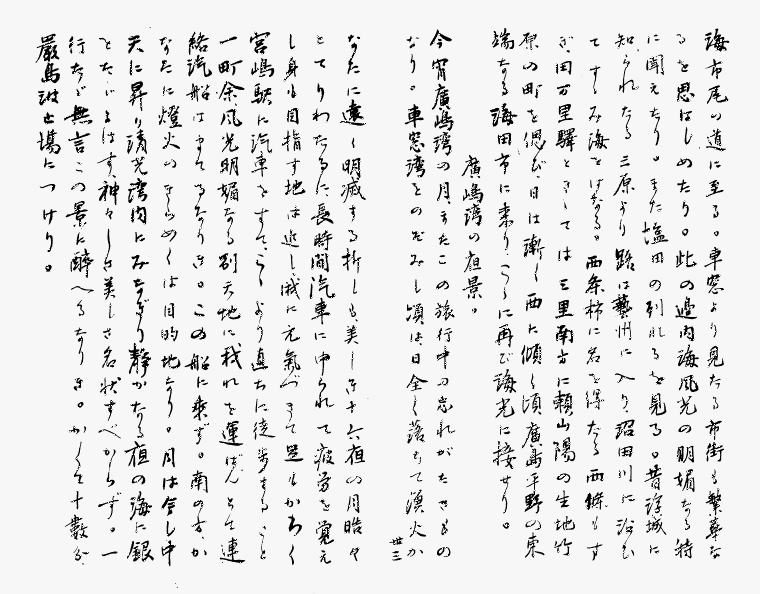 海市尾の道に至る。車窓より見たる市街も繁華な
るを思はしめたり。此の辺内海風光の明媚なる特
に聞えたり。また塩田の列れるを見る。昔浮城に
知られたる三原より路は藝州に入り沼田川に沿ひ
てすゝみ海をはなる。西条柿に名を得たる西條もす
ぎ田万里驛ときしては三里南方に頼山陽の生地竹
原の町を偲び日は漸く西に傾く頃廣島平野の東
端なる海田市に来り、こゝに再び海光に接せり。
廣嶋湾の夜景。
今宵廣嶋湾の月、またこの旅行中の忘れがたきもの
なり。車窓湾をのぞみし頃は日全く落ちて漁火か
卅三
なたに遠く明滅する折しも美しき十六夜の月皓々
とてりわたるに長時間汽車にゆられて疲労を覚え
し身も目指す地は近し俄に元氣づきて足もかろく
宮嶋駅に汽車をすて、こゝより直ちに徒歩すること
一町余風光明媚なる別天地に我れを運ばんとて連
絡汽船はまてるなりき。この船に乗ず。南の方、か
なたに燈火のきらめくは目的地なり。月は今し中
天に昇り清光湾内にみなぎり静かなる夜の海に銀
とたゞるはす、神々しさ美しさ名状すべからず。一
行たゞ無言この景に酔へるなりき。かくて十数分、
嚴島波止場につけり。